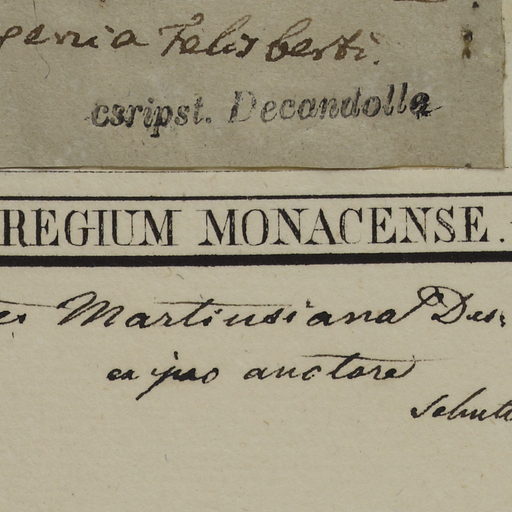 genia Felisberti.
csripst. Decandolle
REGIUM MONACENSE.
Martiusiana Des.
ex ipso auctore
Schult